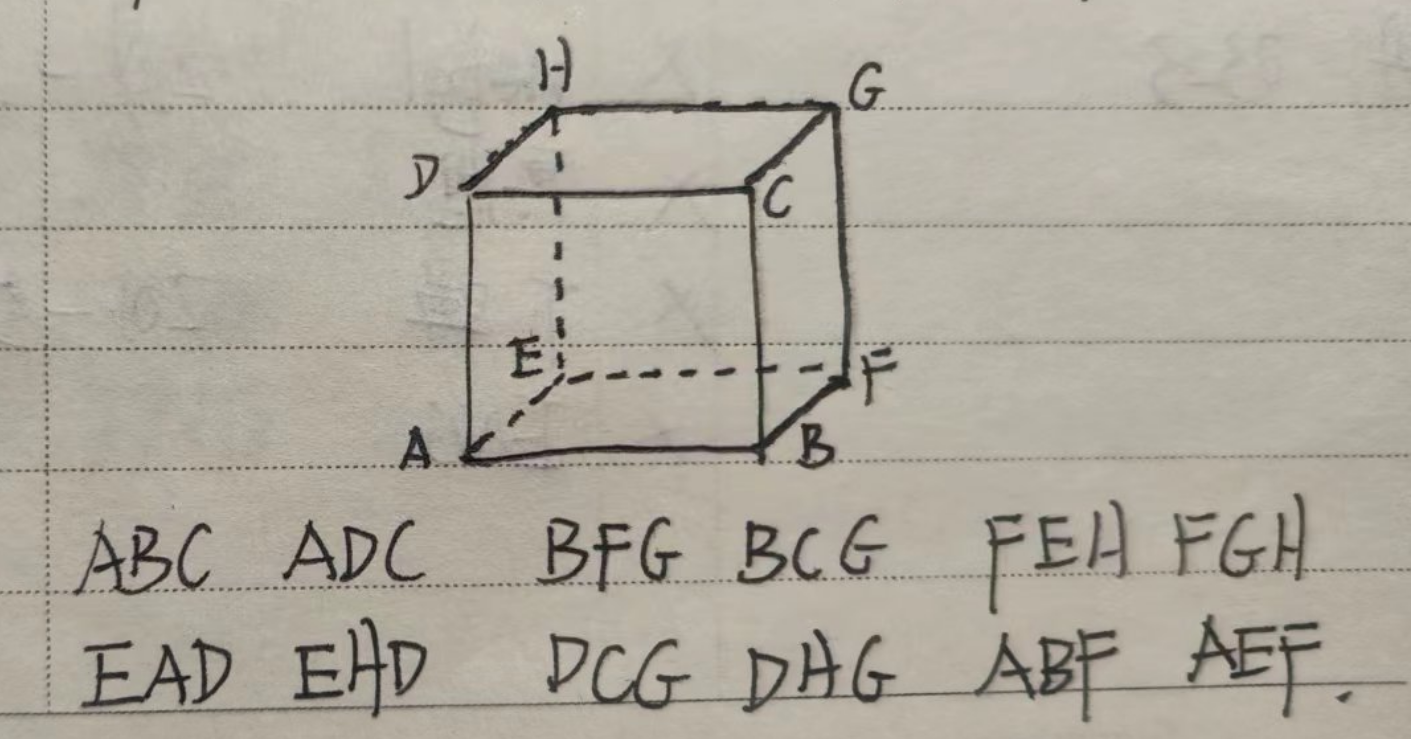 H
G
D
C
E
F
A
B
ABC ADC BFG BCG FEH FGH
EAD EHD DCG DHG ABF AEF.